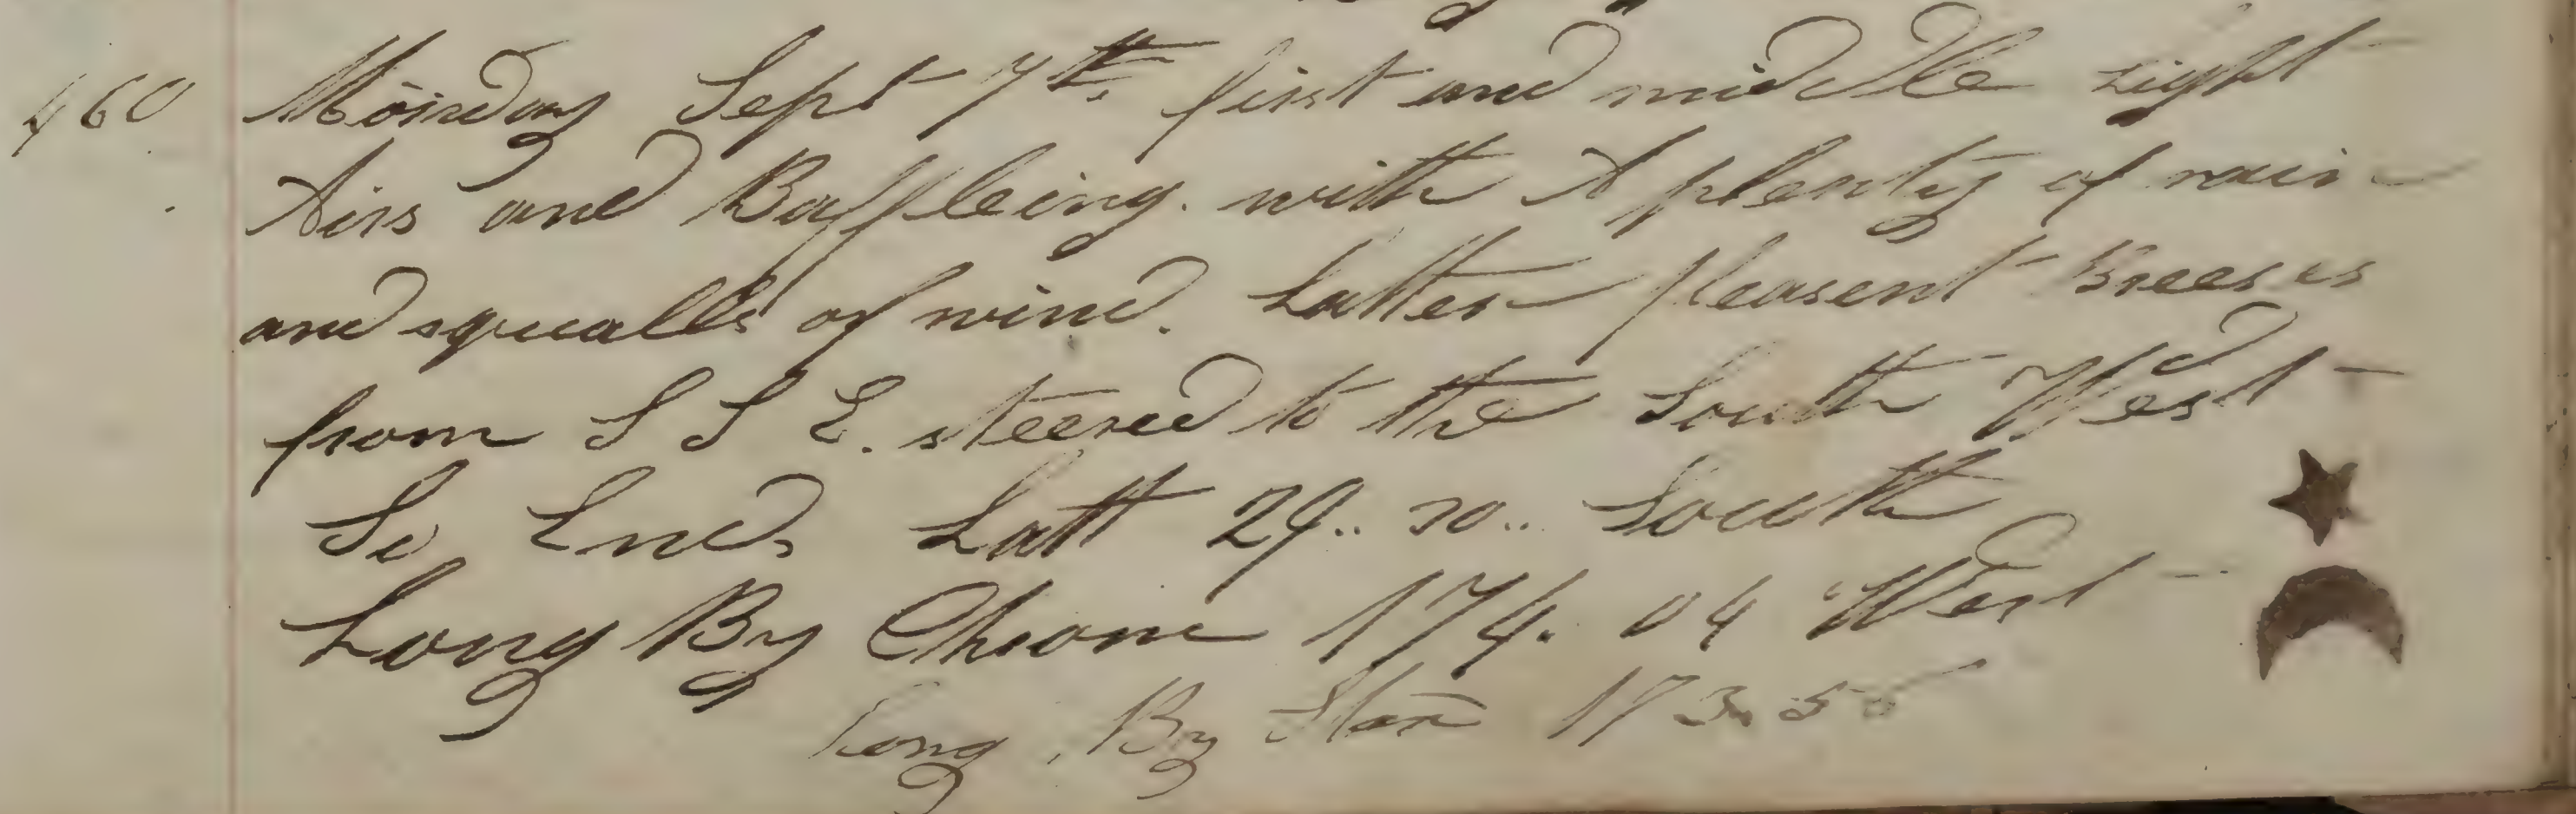 460 Monday Sept 7th first and middle Light
Airs and Baffleing. with A plenty of rain
and squalls of wind. Latter pleasent Breeses
from S S E. steered to the South West
So Ends Latt 29.. 30.. South
Long By Chrom 174. 04 West
Long, By Star 173. 55